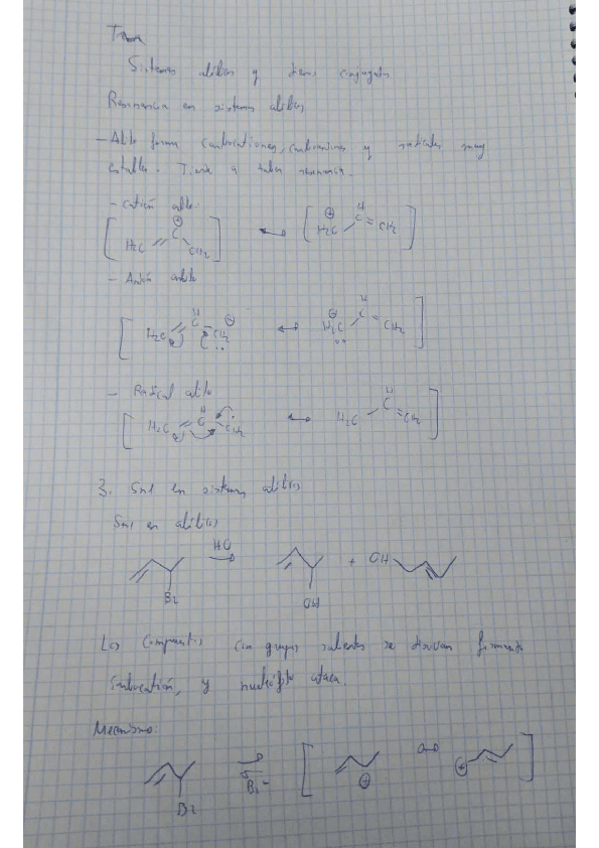 Tema
Sistemas alílicos y dienos conjugados
Resonancia en sistemas alílicos
- Alilo forma carbocationes, carbaniones y radicales muy
estables. Tiende a haber resonancia.
- catión alilo
⊕
H₂C C CH₂ ↔ ⊕ H₂C C H CH₂
- Anión alilo
H₂C C H CH₂ ↔ H₂C C H CH₂
- Radical alilo
H₂C C H CH₂ ↔ H₂C C H CH₂
3. Sn1 en sistemas alílicos
Sn1 en alílicos
H2O
Br OH + OH
Los compuestos con grupos salientes se disocian formando
carbocatión, y nucleófilo ataca.
Mecanismo:
Br Br⁻ ⊕ ↔ ⊕